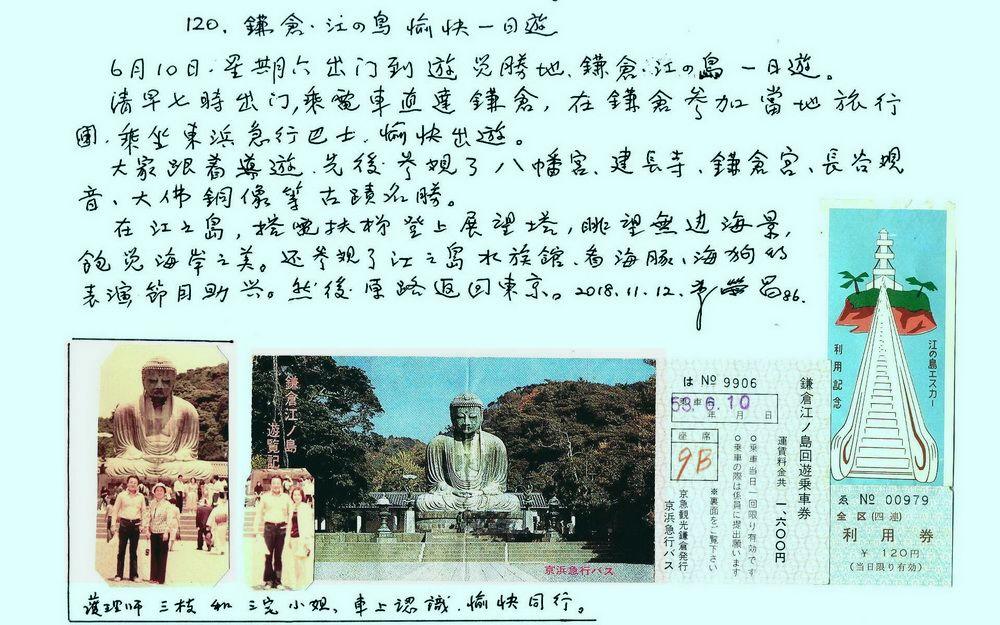 120. 鎌倉·江の島 愉快一日遊
6月10日·星期六 出门到 遊览勝地、鎌倉·江の島 一日遊。
清早七時出门,乘電車直達鎌倉,在鎌倉参加當地旅行
團,乘坐東浜急行巴士,愉快出遊。
大家跟着導遊,先後参观了八幡宮、建長寺、鎌倉宮、長谷观
音、大佛銅像等古蹟名勝。
在江之島,搭電扶梯登上展望塔,眺望無边海景,
飽览海岸之美。还参观了江之島水族館、看海豚、海狗的
表演節目助兴。然後原路返回東京。2018.11.12.
86.
鎌倉江ノ島
遊覧記
京浜急行バス
は № 9906
乗車日
53.6.10
年 月 日
座席
9B
鎌倉江ノ島回遊乗車券
運賃料金共 一、六〇〇円
○乗車当日一回限り有効です
○乗車の際は係員に提出願います
※裏面をご覧下さい
京急観光鎌倉発行
京浜急行バス
江の島エスカー
利用記念
ゑ № 00979
全区(四連)
利用券
¥ 120円
(当日限り有効)
護理师 三枝 和 三宅小姐、車上認識,愉快同行。